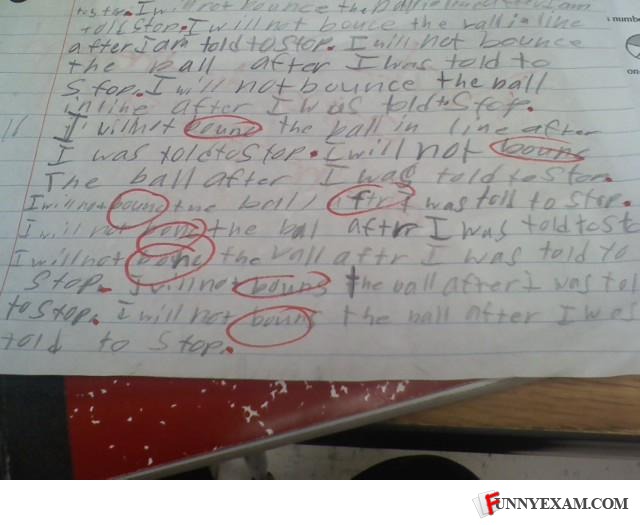 I will not bounce the ball in line after I am
told Stop. I will not bouce the ball in line
after I am told to Stop. I will not bounce
the ball after I was told to
Stop. I will not bounce the ball
in line after I was told to Stop.
11 I will not the ball in line after
I was told to Stop. I will not bouns
The ball after I was told to Stop.
I will not bounc the ball aftr I was told to Stop.
I will not bonc the ball aftr I was told to Sto
I will not the ball aftr I was told to
Stop. I will not bouns the ball after I was tol
to Stop. I will not bouns the ball after I was
told to Stop.
s number
on
FUNNYEXAM.COM